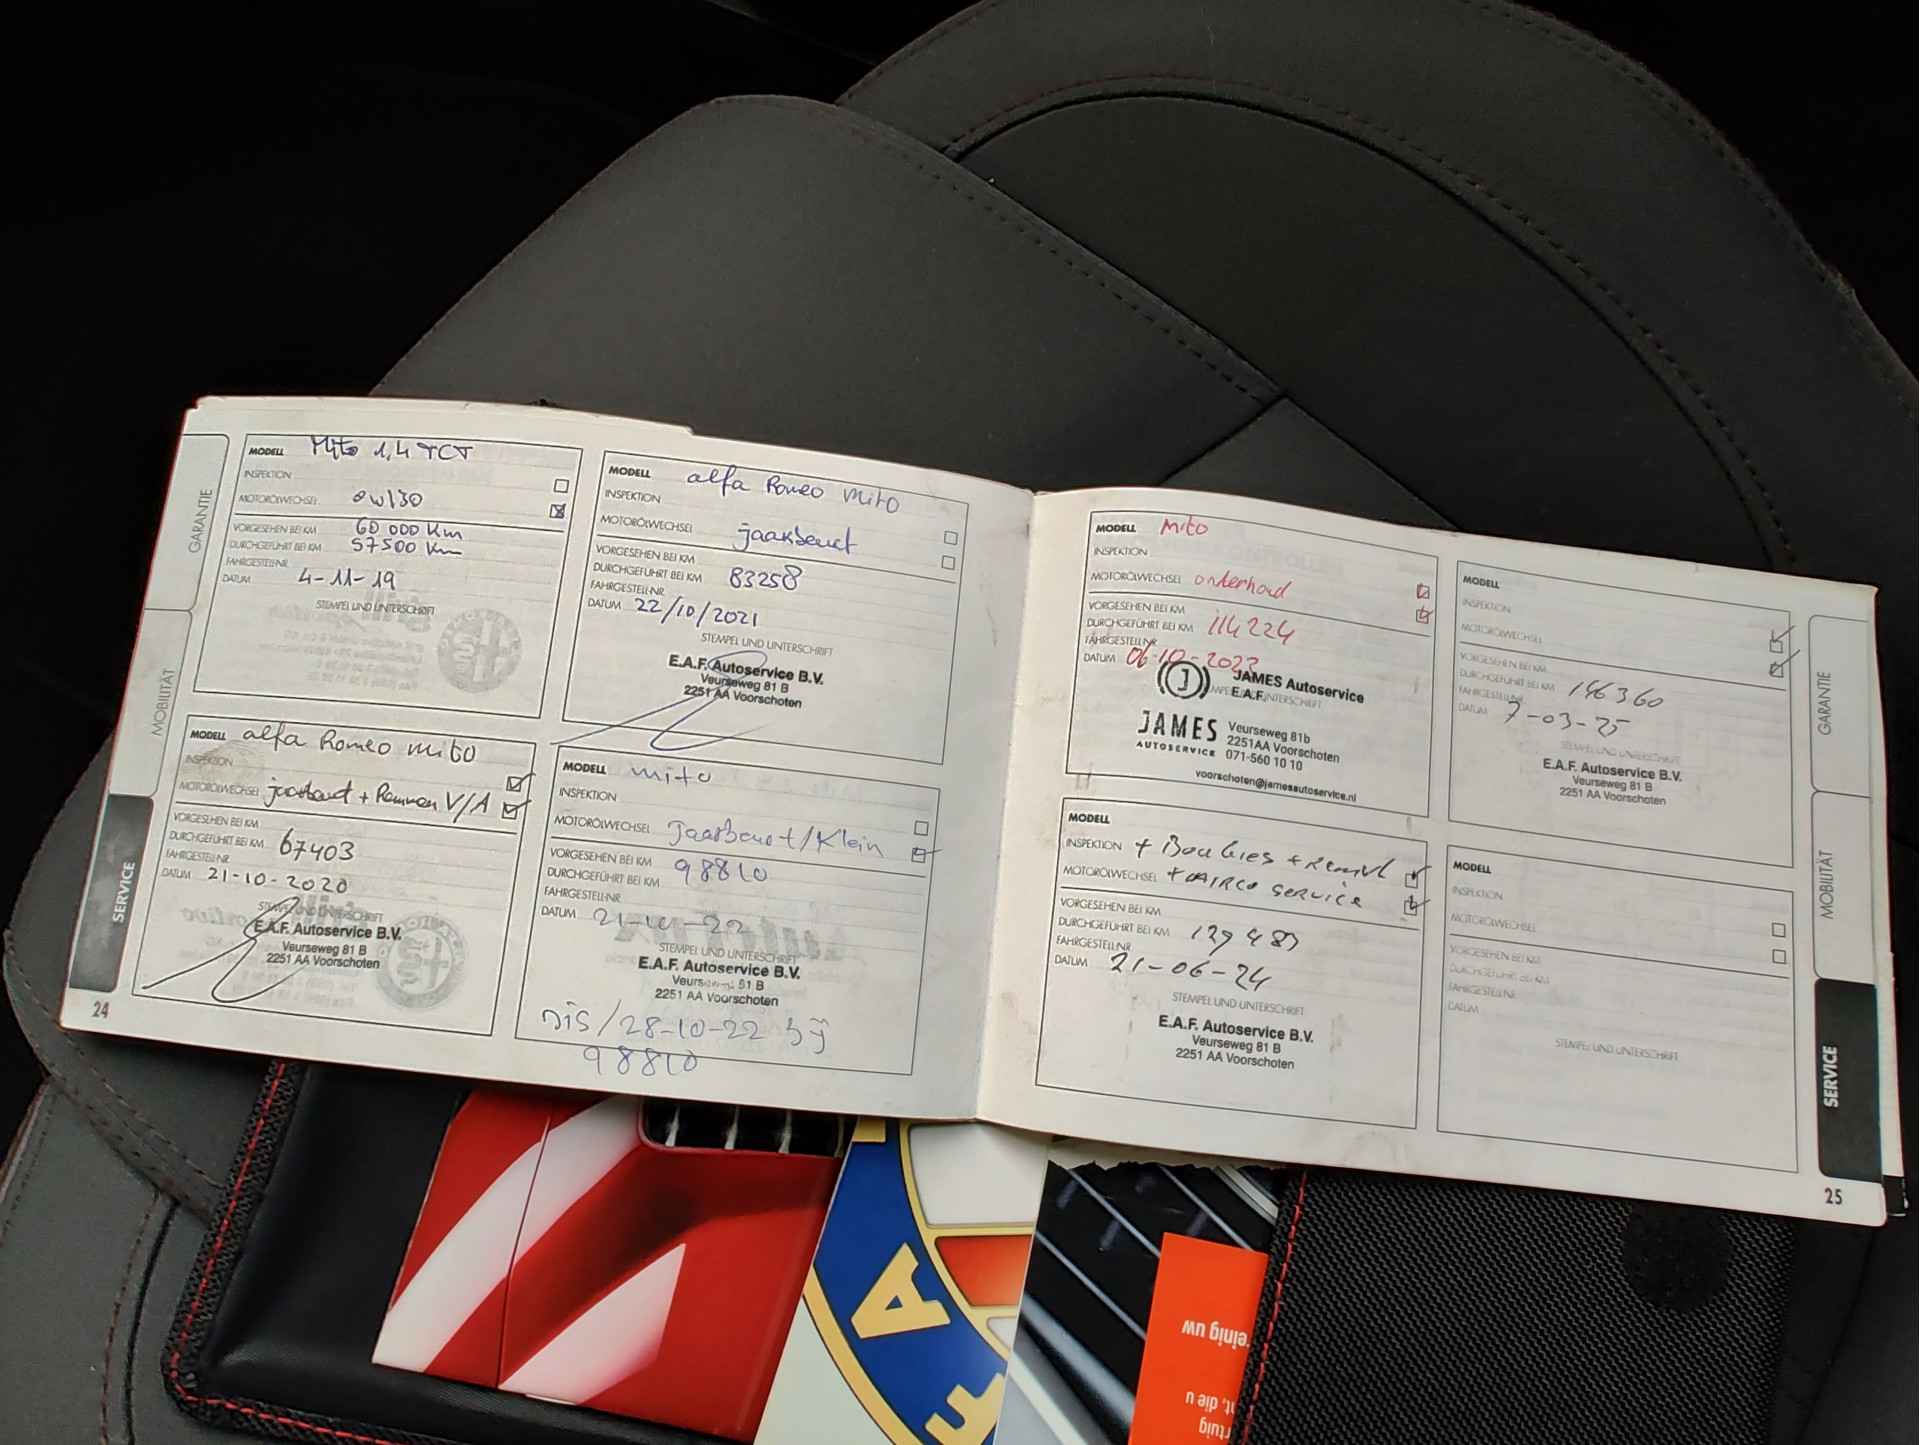 GARANTIE
MOBILITÄT
SERVICE
MODELL Mito 1,4 TCT
INSPEKTION
MOTORÖLWECHSEL 0W/30
VORGESEHEN BEI KM 60 000 Km
DURCHGEFÜHRT BEI KM 57500 Km
FAHRGESTELL-NR.
DATUM 4-11-19
STEMPEL UND UNTERSCHRIFT
MODELL alfa Romeo mito
INSPEKTION
MOTORÖLWECHSEL jaarbeurt + Remmen V/A
VORGESEHEN BEI KM
DURCHGEFÜHRT BEI KM 67403
FAHRGESTELL-NR.
DATUM 21-10-2020
STEMPEL UND UNTERSCHRIFT
E.A.F. Autoservice B.V.
Veurseweg 81 B
2251 AA Voorschoten
24
MODELL alfa Romeo mito
INSPEKTION
MOTORÖLWECHSEL jaarbeurt
VORGESEHEN BEI KM
DURCHGEFÜHRT BEI KM 83258
FAHRGESTELL-NR.
DATUM 22/10/2021
STEMPEL UND UNTERSCHRIFT
E.A.F. Autoservice B.V.
Veurseweg 81 B
2251 AA Voorschoten
MODELL mito
INSPEKTION
MOTORÖLWECHSEL jaarbeurt/Klein
VORGESEHEN BEI KM 98810
DURCHGEFÜHRT BEI KM
FAHRGESTELL-NR.
DATUM 21-10-22
STEMPEL UND UNTERSCHRIFT
E.A.F. Autoservice B.V.
Veurseweg 81 B
2251 AA Voorschoten
Dis/28-10-22 bij
98810
MODELL mito
INSPEKTION
MOTORÖLWECHSEL onderhoud
VORGESEHEN BEI KM
DURCHGEFÜHRT BEI KM 114224
FAHRGESTELL-NR.
DATUM 06-10-2023
JAMES Autoservice
E.A.F.
JAMES
AUTOSERVICE
Veurseweg 81b
2251AA Voorschoten
071-560 10 10
voorschoten@jamesautoservice.nl
MODELL
INSPEKTION + Bougies +
MOTORÖLWECHSEL + AIRCO SERVICE
VORGESEHEN BEI KM
DURCHGEFÜHRT BEI KM 129483
FAHRGESTELL-NR.
DATUM 21-06-24
STEMPEL UND UNTERSCHRIFT
E.A.F. Autoservice B.V.
Veurseweg 81 B
2251 AA Voorschoten
MODELL
INSPEKTION
MOTORÖLWECHSEL
VORGESEHEN BEI KM
DURCHGEFÜHRT BEI KM 146360
FAHRGESTELL-NR.
DATUM 7-03-25
STEMPEL UND UNTERSCHRIFT
E.A.F. Autoservice B.V.
Veurseweg 81 B
2251 AA Voorschoten
MODELL
INSPEKTION
MOTORÖLWECHSEL
VORGESEHEN BEI KM
DURCHGEFÜHRT BEI KM
FAHRGESTELL-NR.
DATUM
STEMPEL UND UNTERSCHRIFT
GARANTIE
MOBILITÄT
SERVICE
25
einig uw
die u